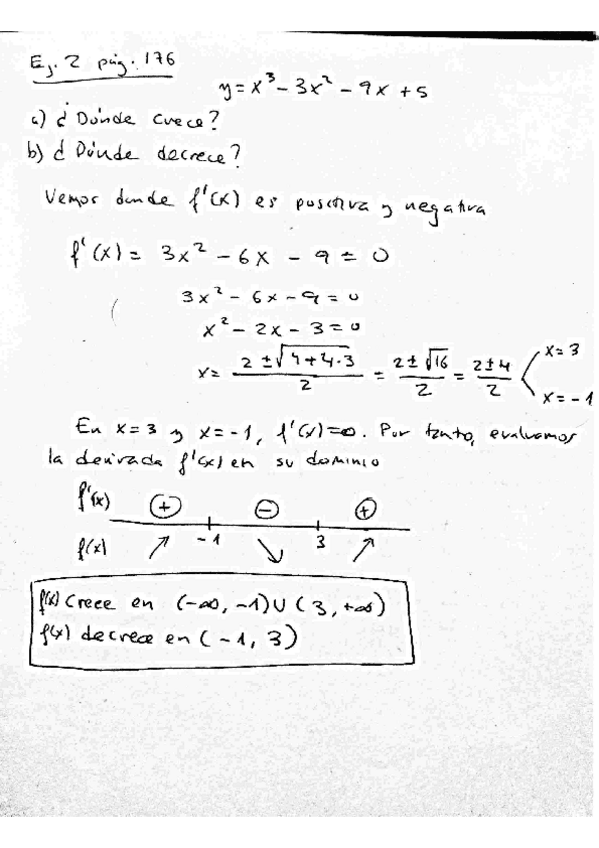 Ej. 2 pág. 176
y = x³ - 3x² - 9x + 5
a) ¿Dónde crece?
b) ¿Dónde decrece?
Vemos donde f'(x) es positiva y negativa
f'(x) = 3x² - 6x - 9 = 0
3x² - 6x - 9 = 0
x² - 2x - 3 = 0
x = (2 ± √(4+4·3))/2 = (2 ± √16)/2 = (2 ± 4)/2 < x = 3 x = -1
En x = 3 y x = -1, f'(x) = 0. Por tanto, evaluamos
la derivada f'(x) en su dominio
f'(x) + - +
-1 3
f(x) ↗ ↘ ↗
f(x) Crece en (-∞, -1) ∪ (3, +∞)
f(x) decrece en (-1, 3)